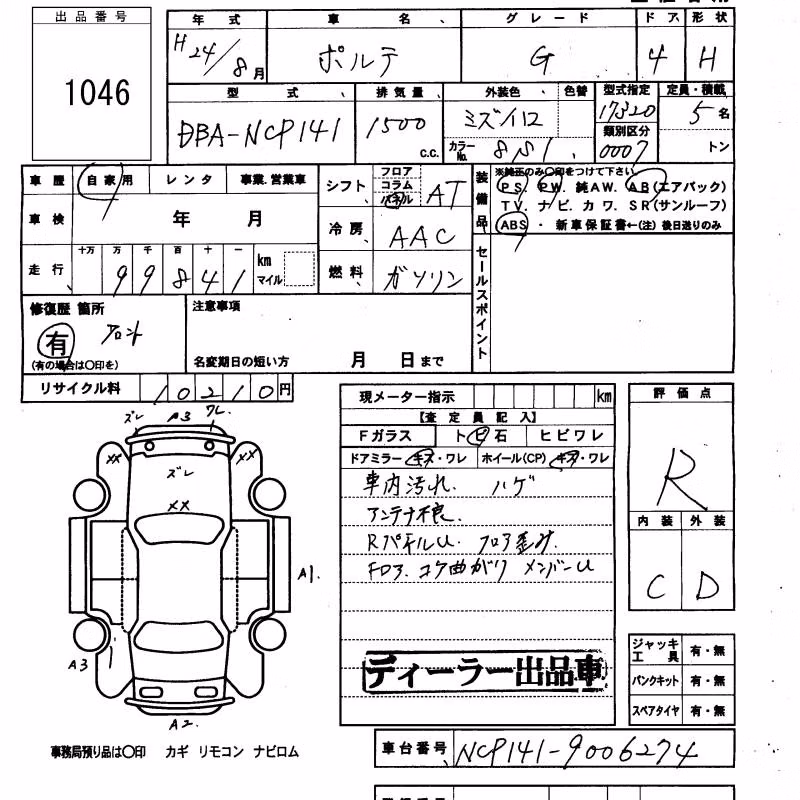 出品番号
1046
年式 車名 グレード ドア 形状
H24/8月 ポルテ G 4 H
型式 排気量 外装色 色替 型式指定 定員・積載
DBA-NCP141 1500c.c. ミズイロ 17320 5名
カラーNo. 8S1 類別区分 0007 トン
車歴 自家用 レンタ 事業.営業車
車検 年 月
走行 十万 万 千 百 十 一 km マイル
99841
シフト フロア コラム パネル AT
冷房 AAC
燃料 ガソリン
装備品 ※純正のみ○印をつけて下さい
PS. PW. 純AW. AB(エアバック)
TV. ナビ. カワ. SR(サンルーフ)
ABS ・ 新車保証書←(注) 後日送りのみ
セールスポイント
修復歴 箇所
有 フロント
(有の場合は○印を)
注意事項
名変期日の短い方 月 日まで
リサイクル料 10210円
現メーター指示 km
【査定員記入】
Fガラス トビ石 ヒビワレ
ドアミラー キズ・ワレ ホイール(CP) キズ・ワレ
車内汚れ. ハゲ
アンテナ不良.
RパネルU. フロア歪み.
FDア. コア曲がり メンバーU
ディーラー出品車
評価点
R
内装 外装
C D
ズレ A3 ワレ.
XX XX
ズレ
XX
A1.
A3
A2.
ジャッキ工具 有・無
パンクキット 有・無
スペアタイヤ 有・無
事務局預り品は○印 カギ リモコン ナビロム
車台番号 NCP141-9006274